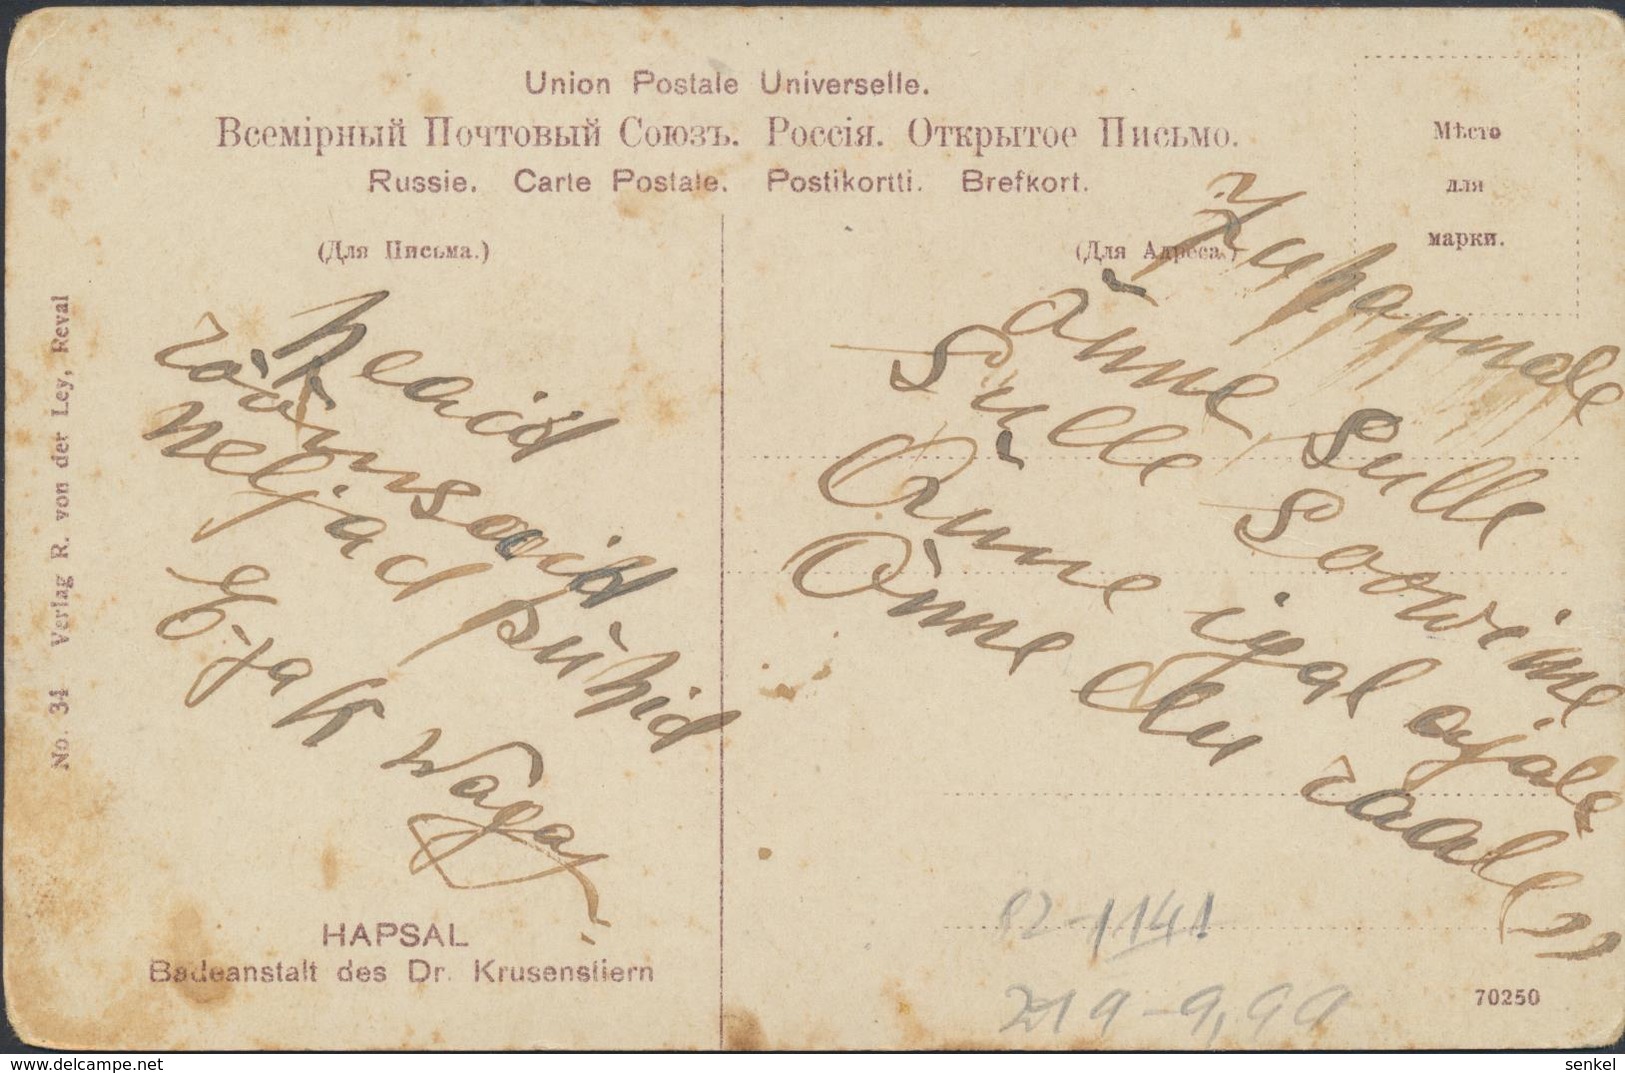 Union Postale Universelle.
Всемірный Почтовый Союзъ. Россія. Открытое Письмо.
Russie. Carte Postale. Postikortti. Brefkort.
Мѣсто
для
марки.
(Для Письма.)
(Для Адреса.)
Heaid
rõõmsaid
neljad pühid
E. jak Waga
õnne Sulle
Sulle Soowime
Õnne igal ajale
Õnne elu raale
No. 34 Verlag R. von der Ley, Reval
HAPSAL
Badeanstalt des Dr. Krusenstiern
82-1141
219-9,99
70250
senkel